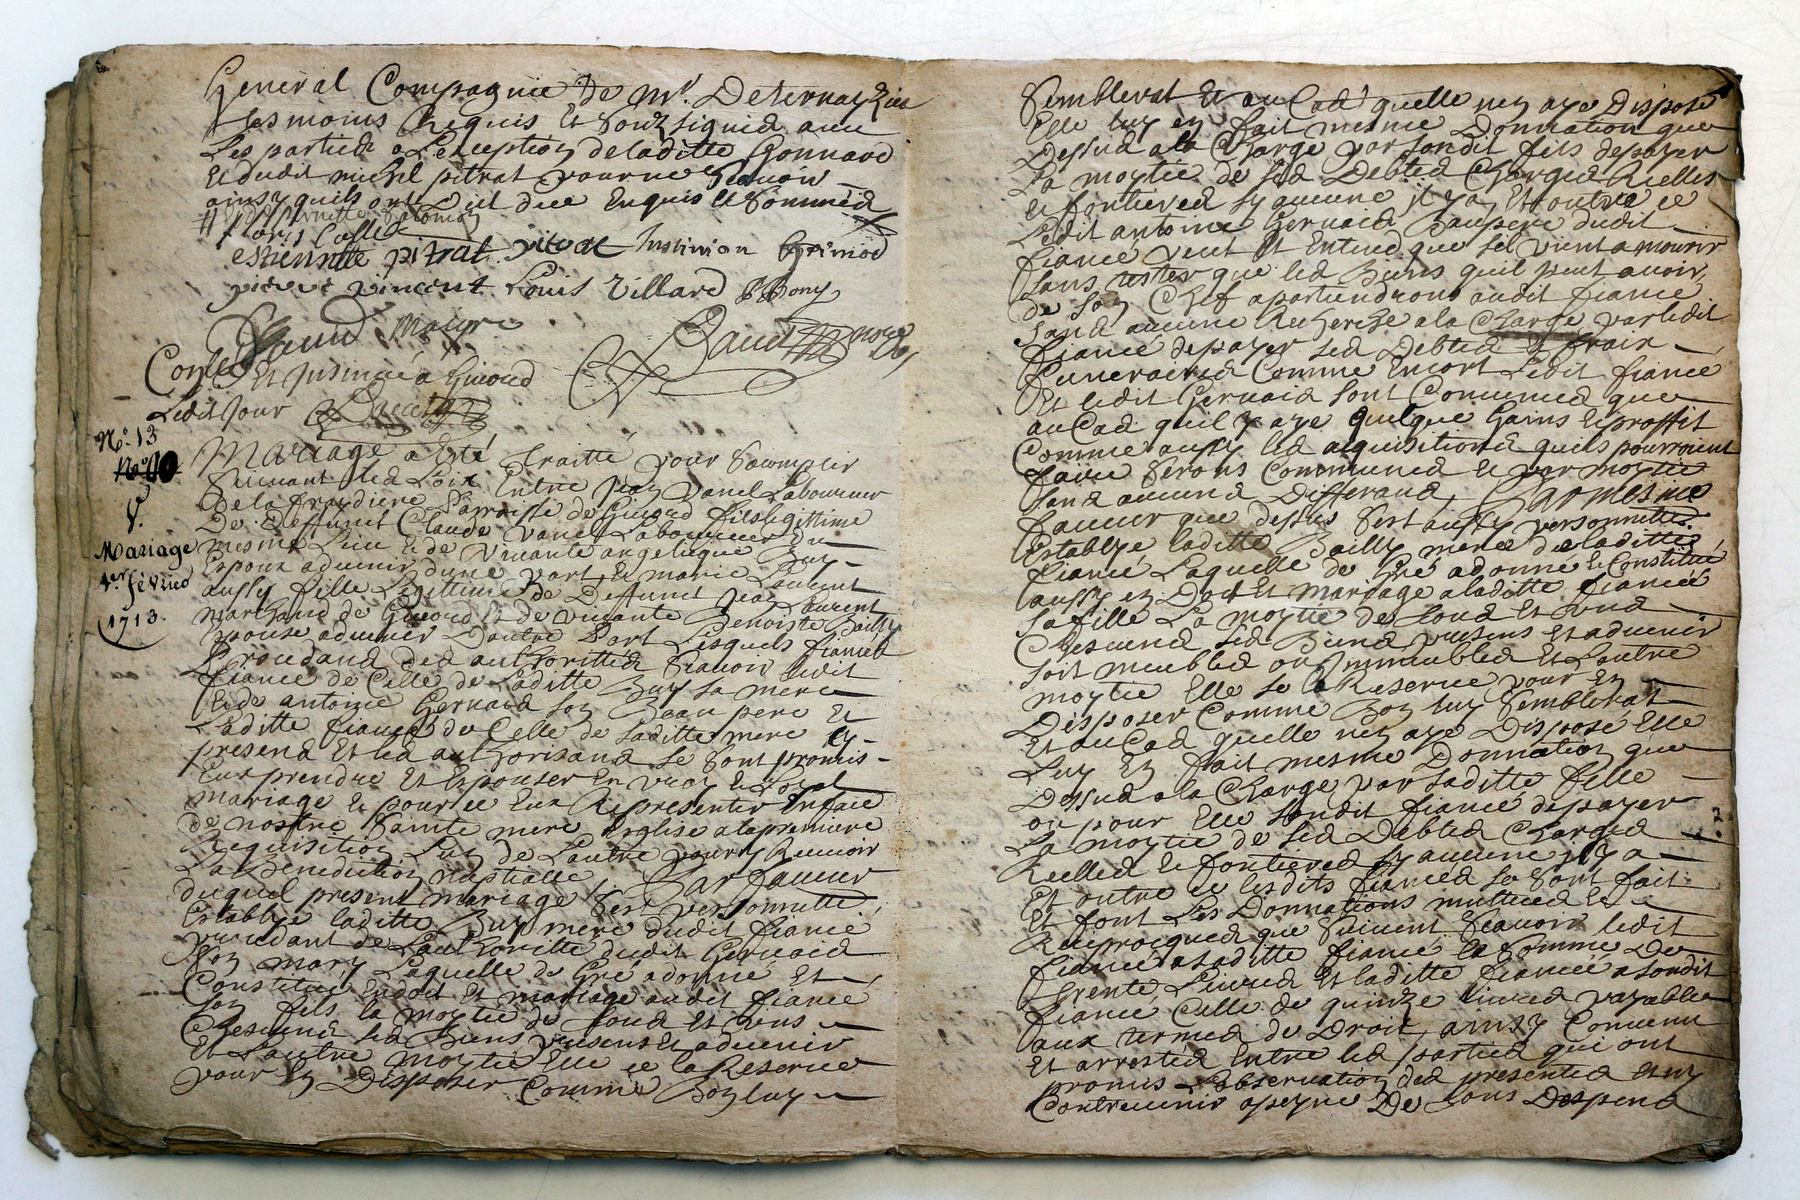 General Compagnie de Mr. Deternay
tesmoins Requis Et Soubsignés avec
Les parties a L'exception de laditte Gonnard
Et dudit michel pitrat pour ne Scavoir
ainsy quils ont dit de ce Enquis et Sommés
estiennette pitrat pitrat Grimod
pierre vincent Louis Villard
Et Insinué a Givord
Ledit Jour
N° 13
N° 10
Mariage
1er fevrier
1713.
Mariage a Esté traitté pour Saccomplir
Suivant les Loix Entre Jean vanel Laboureur
de la frandiere Parroisse de Givord fils legittime
De Deffunct Claude vanel Laboureur du
mesme Lieu et de vivante angelique Buy
Espoux advenir d'une part, et marie Laurent
aussy fille Legittime de Deffunct Jean Laurent
marchand de Givord et de vivante Benoiste Bailly
Epouse advenir D'autre Part Lesquels fiancés
procedans des authorittés Scavoir ledit
fiancé de Celle de Laditte Buy sa mere
et de antoine Gervaid son Beau pere Et
Laditte fiancée de Celle de saditte mere Cy
presens Et les authorisans se sont promis
Eux prendre Et Espouser En vray et Loyal
mariage et pour ce Eux Representer En face
de nostre Sainte mere Eglise a la premiere
Requisition L'un de L'autre pour y Recevoir
La Benediction nuptialle, Par faveur
duquel present mariage s'est personnelle
Establye laditte Buy mere dudit fiancé
procedant de L'authoritté dudit Gervaid
son mary Laquelle de Gré a donné Et
Constitué En dot Et mariage audit fiancé
son fils la moytié de tous Et uns
Chescuns ses Biens presens Et advenir
Et L'autre moytié Elle se la Reserve
pour En Disposer Comme Bon luy
Semblerat Et au Cas quelle n'en aye Disposé
Elle luy en fait mesme Donnation que
Dessus a la Charge par sondit fils de payer
La moytié de ses Debtes Charges Reelles
et fontieres sy aucune il y a Et outre ce
Ledit antoine Gervaid Beaupere dudit
fiancé veut Et Entend que s'il vient a mourir
sans tester que les Biens quil peut avoir
de son Chef apartiendront audit fiancé
sans aucune Recherche a la Charge par ledit
fiancé de payer ses Debtes et frais
funeraires Comme Encort Ledit fiancé
Et ledit Gervaid sont Convenus que
au Cas quil y aye quelque Gains et proffit
Comme aussy les acquisitions quils pourroient
faire Serons Communes et par moytié
sans aucuns Differand, Par mesme
faveur que dessus s'est aussy personnelle
Establye laditte Bailly mere de laditte
fiancée Laquelle de Gré a donné et Constitué
aussy en Dot Et Mariage a laditte fiancée
sa fille La moytié de tous Et uns
Chescuns ses Biens presens Et advenir
soit meubles ou Immeubles Et L'autre
moytié Elle se la Reserve pour En
Disposer Comme Bon luy Semblerat
Et au Cas quelle n'en aye Disposé Elle
Luy En fait mesme Donnation que
Dessus a la Charge par saditte fille
ou pour Elle sondit fiancé de payer
La moytié de ses Debtes Charges
Reelles et fontieres sy aucune il y a
Et outre ce lesdits fiancés se sont fait
Et font Les Donnations mutuelles et
Reciproques que Suivent Scavoir ledit
fiancé a laditte fiancée la Somme De
Trente Livres Et laditte fiancée a sondit
fiancé Celle de quinze livres payables
aux termes de Droit, ainsy Convenu
Et arresté Entre les parties qui ont
promis L'observation des presentes Et ny
Contrevenir a peyne De tous Despens